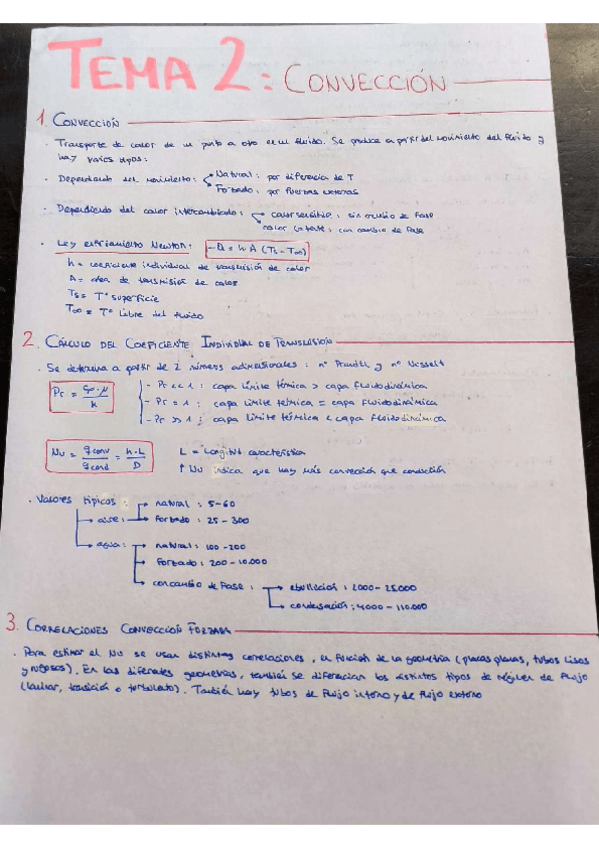 TEMA 2: CONVECCIÓN
1 CONVECCIÓN
· Transporte de calor de un punto a otro en un fluido. Se produce a partir del movimiento del fluido y
hay varios tipos:
· Dependiendo del movimiento: Natural: por diferencia de T
Forzado: por fuerzas externas
· Dependiendo del calor intercambiado: calor sensible: sin cambio de fase
calor latente: con cambio de fase
· Ley enfriamiento Newton: -Q = h·A (Ts - T∞)
h = coeficiente individual de transmisión de calor
A = área de transmisión de calor
Ts = Tº superficie
T∞ = Tº libre del fluido
2. CÁLCULO DEL COEFICIENTE INDIVIDUAL DE TRANSMISIÓN
· Se determina a partir de 2 números adimensionales: nº Prandtl y nº Nusselt
Pr = Cp·μ / k
- Pr << 1: capa límite térmica > capa fluidodinámica
- Pr = 1: capa límite térmica = capa fluidodinámica
- Pr >> 1: capa límite térmica < capa fluidodinámica
Nu = q conv / q cond = h·L / D
L = Longitud característica
↑ Nu indica que hay más convección que conducción
· Valores típicos:
aire: natural: 5-60
forzado: 25-300
agua: natural: 100-200
forzado: 200-10.000
cambio de fase: ebullición: 2000-25.000
condensación: 4000-110.000
3. CORRELACIONES CONVECCIÓN FORZADA
· Para estimar el Nu se usan distintas correlaciones, en función de la geometría (placas planas, tubos lisos
y rugosos). En las diferentes geometrías, también se diferencian los distintos tipos de régimen de flujo
(laminar, transición o turbulento). También hay tubos de flujo interno y de flujo externo